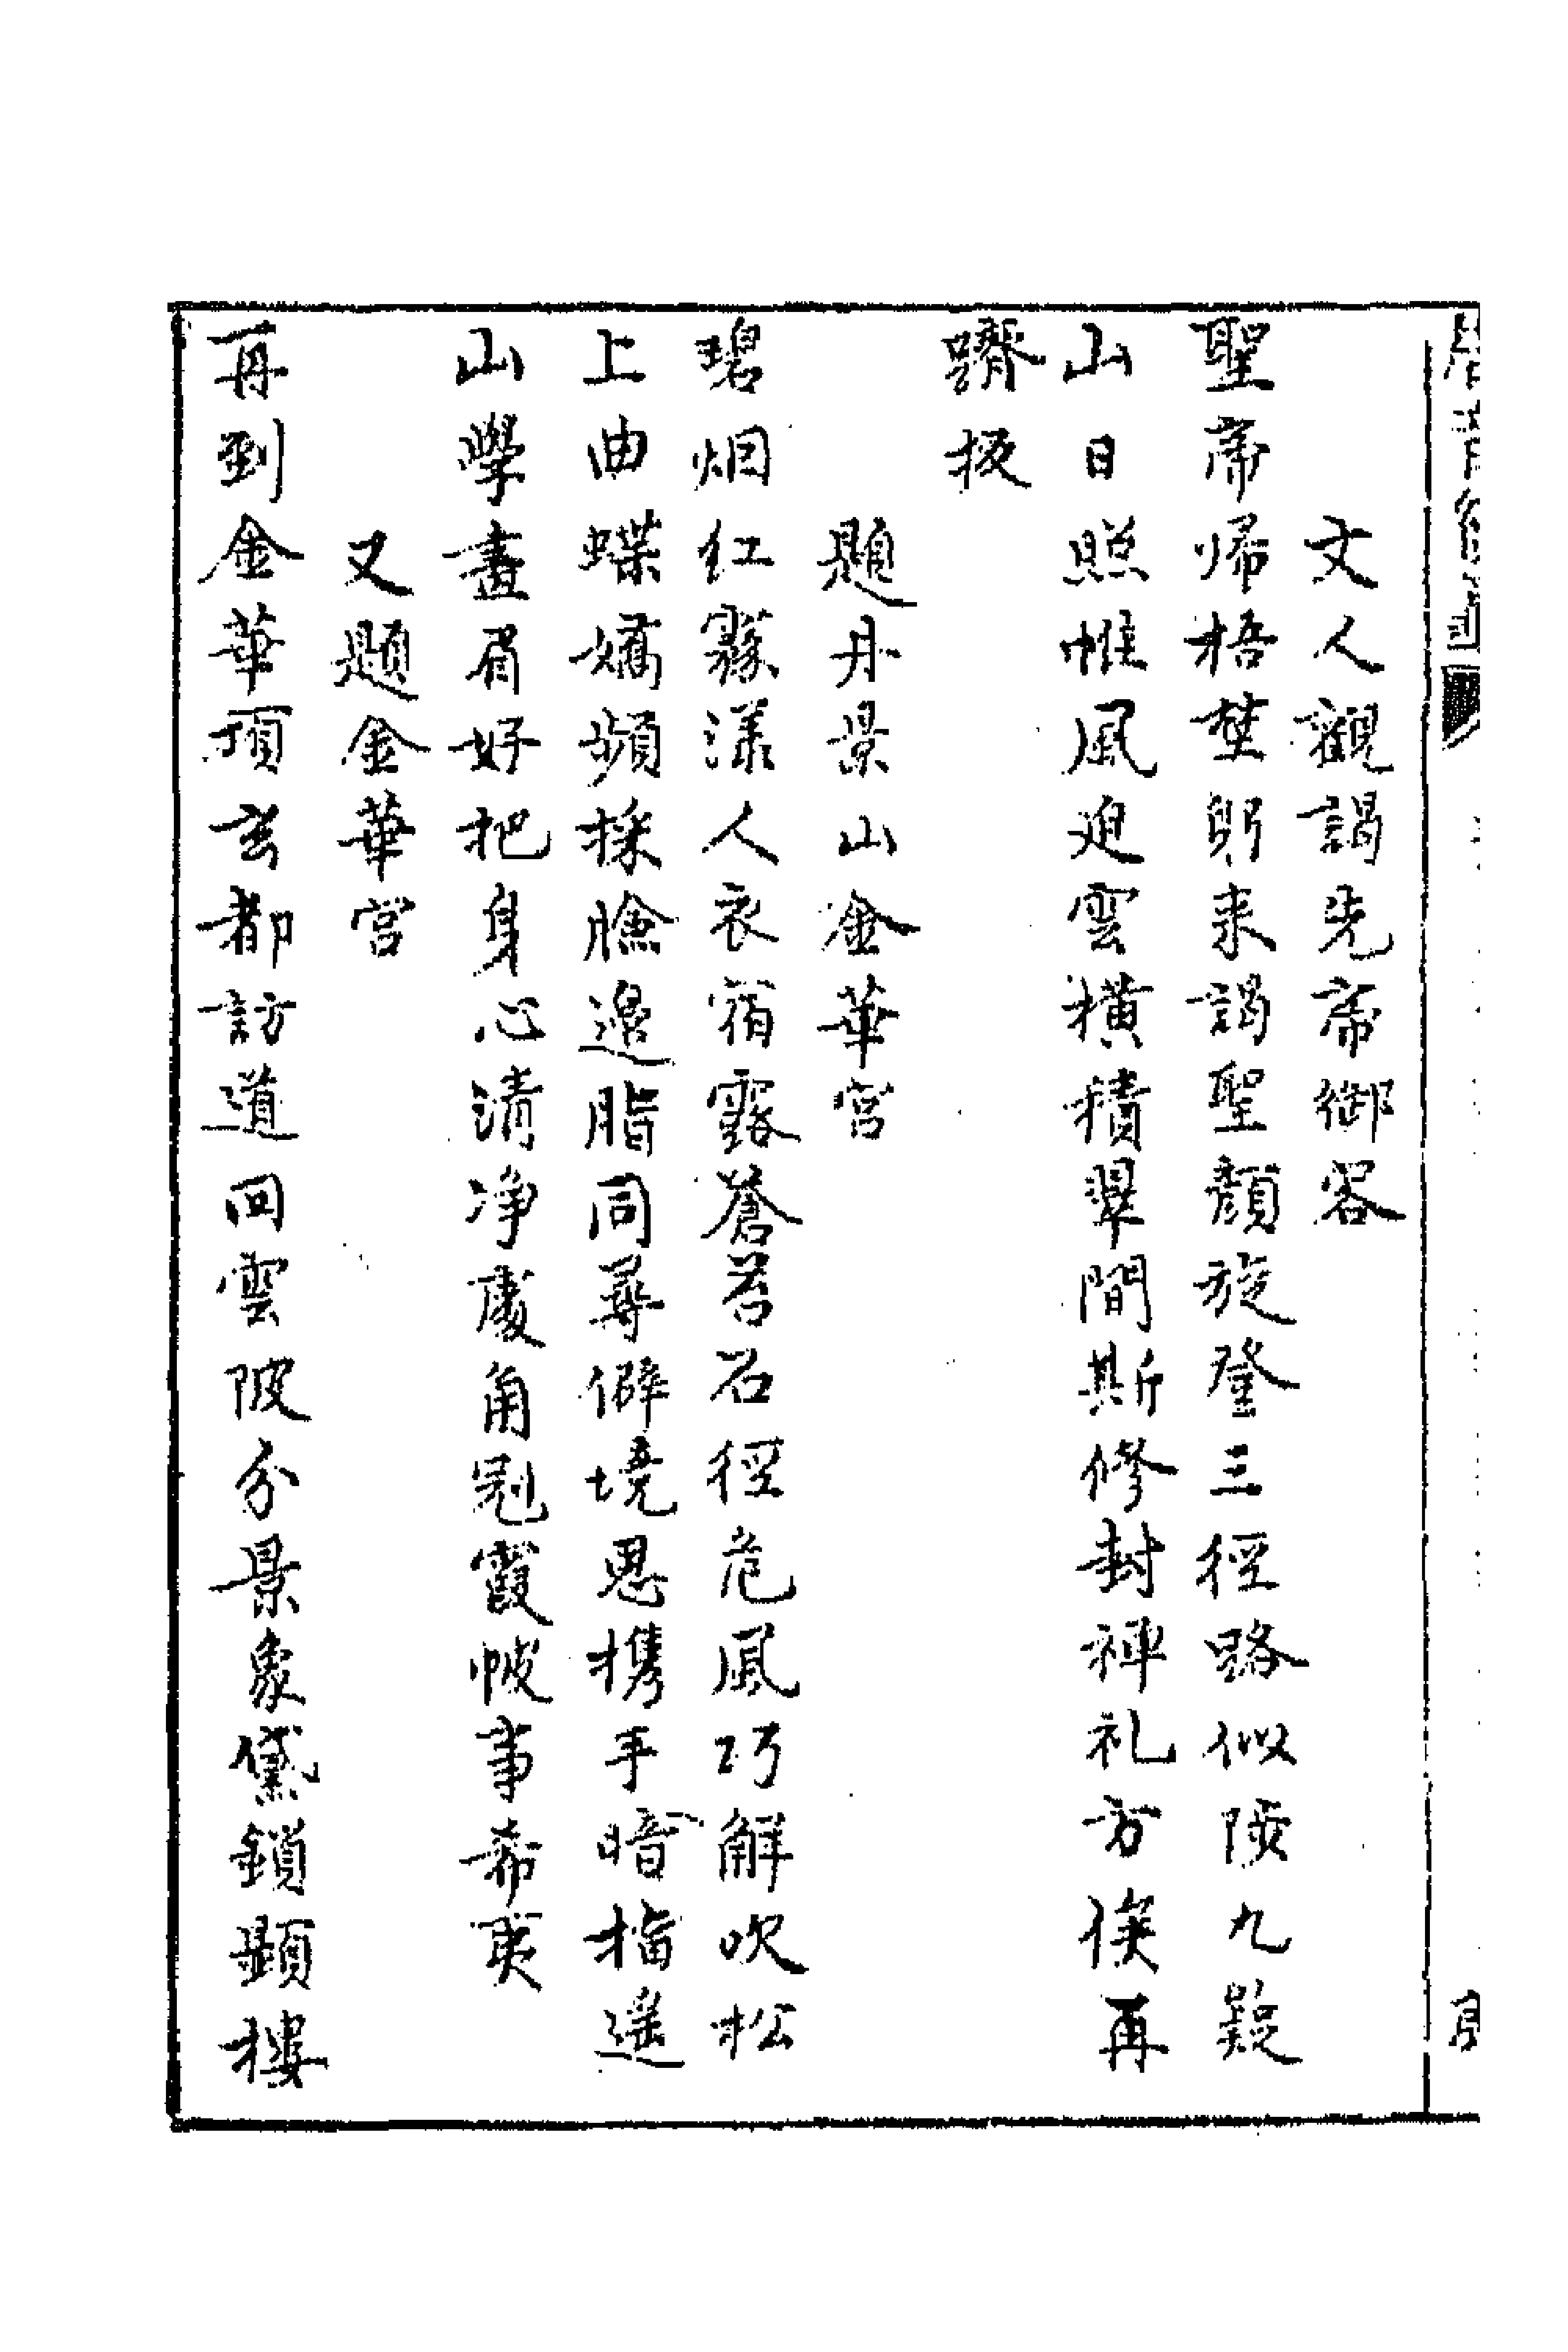 文人觀謁先帝御容
聖帝歸梧埜躬来謁聖顔旋登三徑路似陟九疑
山日照帷風迫雲橫積翠間斯修封禪礼方俟再
躋扳
題丹景山金華宮
碧烟紅霧漾人衣宿露蒼苔石徑危風巧解吹松
上曲蝶嬌頻採臉邉脂同尋僻境思携手暗指遥
山學畫眉好把身心清净處角冠霞帔事希夷
又題金華宮
再到金華頂玄都訪道回雲陂分景象黛鎖顕樓